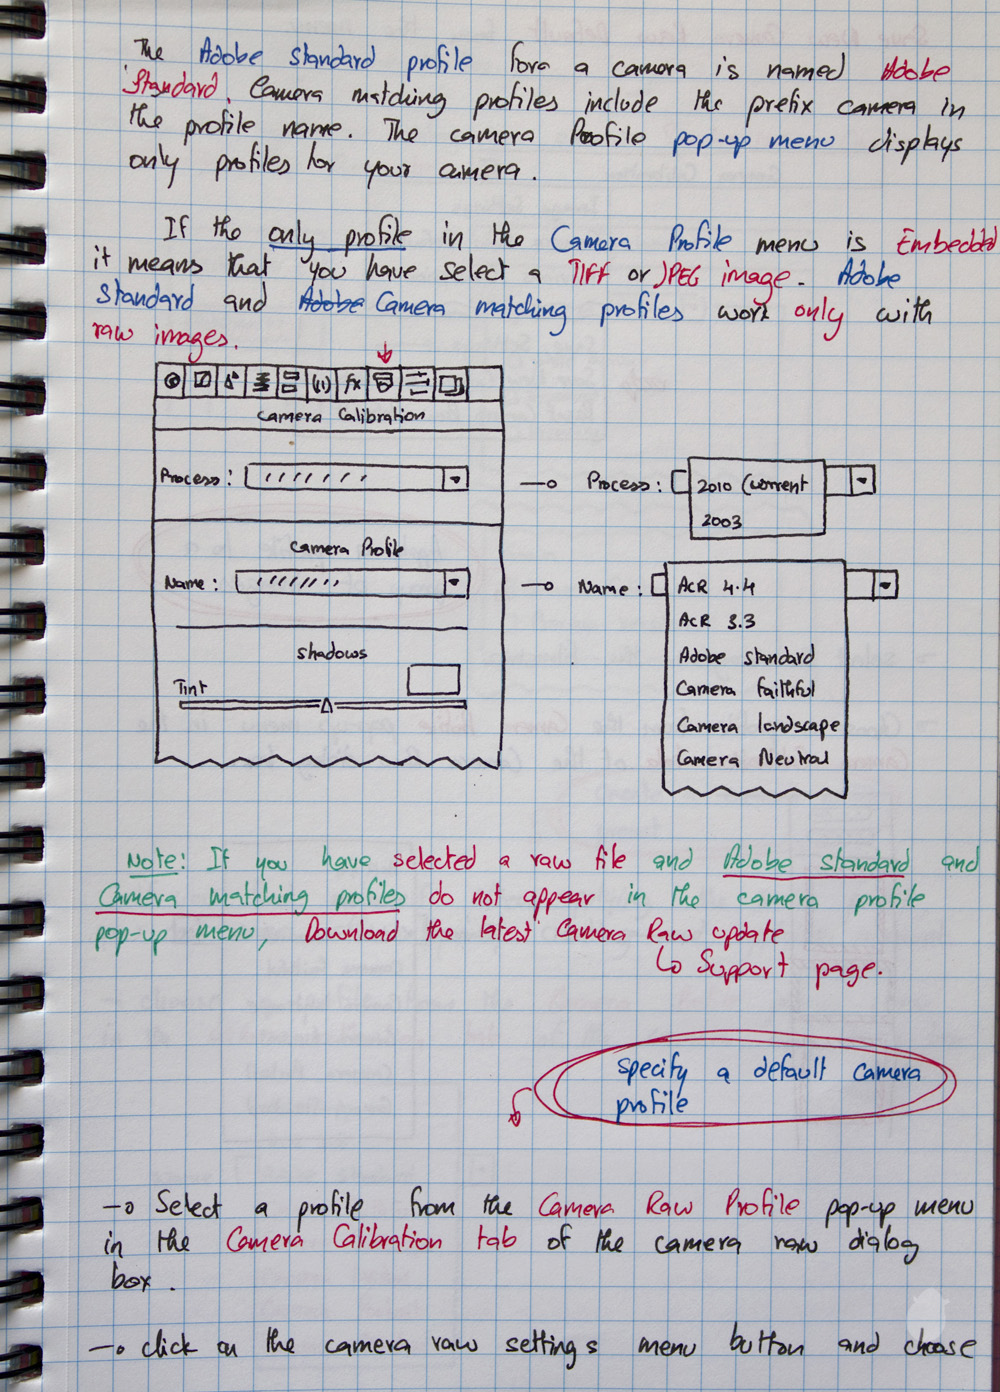 The Adobe standard profile fora a camera is named Adobe
Standard. Camera matching profiles include the prefix camera in
the profile name. The camera Profile pop-up menu displays
only profiles for your camera.
If the only profile in the Camera Profile menu is Embedded
it means that you have select a TIFF or JPEG image. Adobe
Standard and Adobe Camera matching profiles work only with
raw images.
fx
Camera Calibration
Process:
Process:
2010 (current
2003
Camera Profile
Name:
Name:
ACR 4.4
ACR 3.3
Adobe standard
Camera faithful
Camera landscape
Camera Neutral
Shadows
Tint
Note: If you have selected a raw file and Adobe standard and
Camera matching profiles do not appear in the camera profile
pop-up menu, Download the latest Camera Raw update
Support page.
specify a default camera
profile
Select a profile from the Camera Raw Profile pop-up menu
in the Camera Calibration tab of the camera raw dialog
box.
click on the camera raw settings menu button and choose